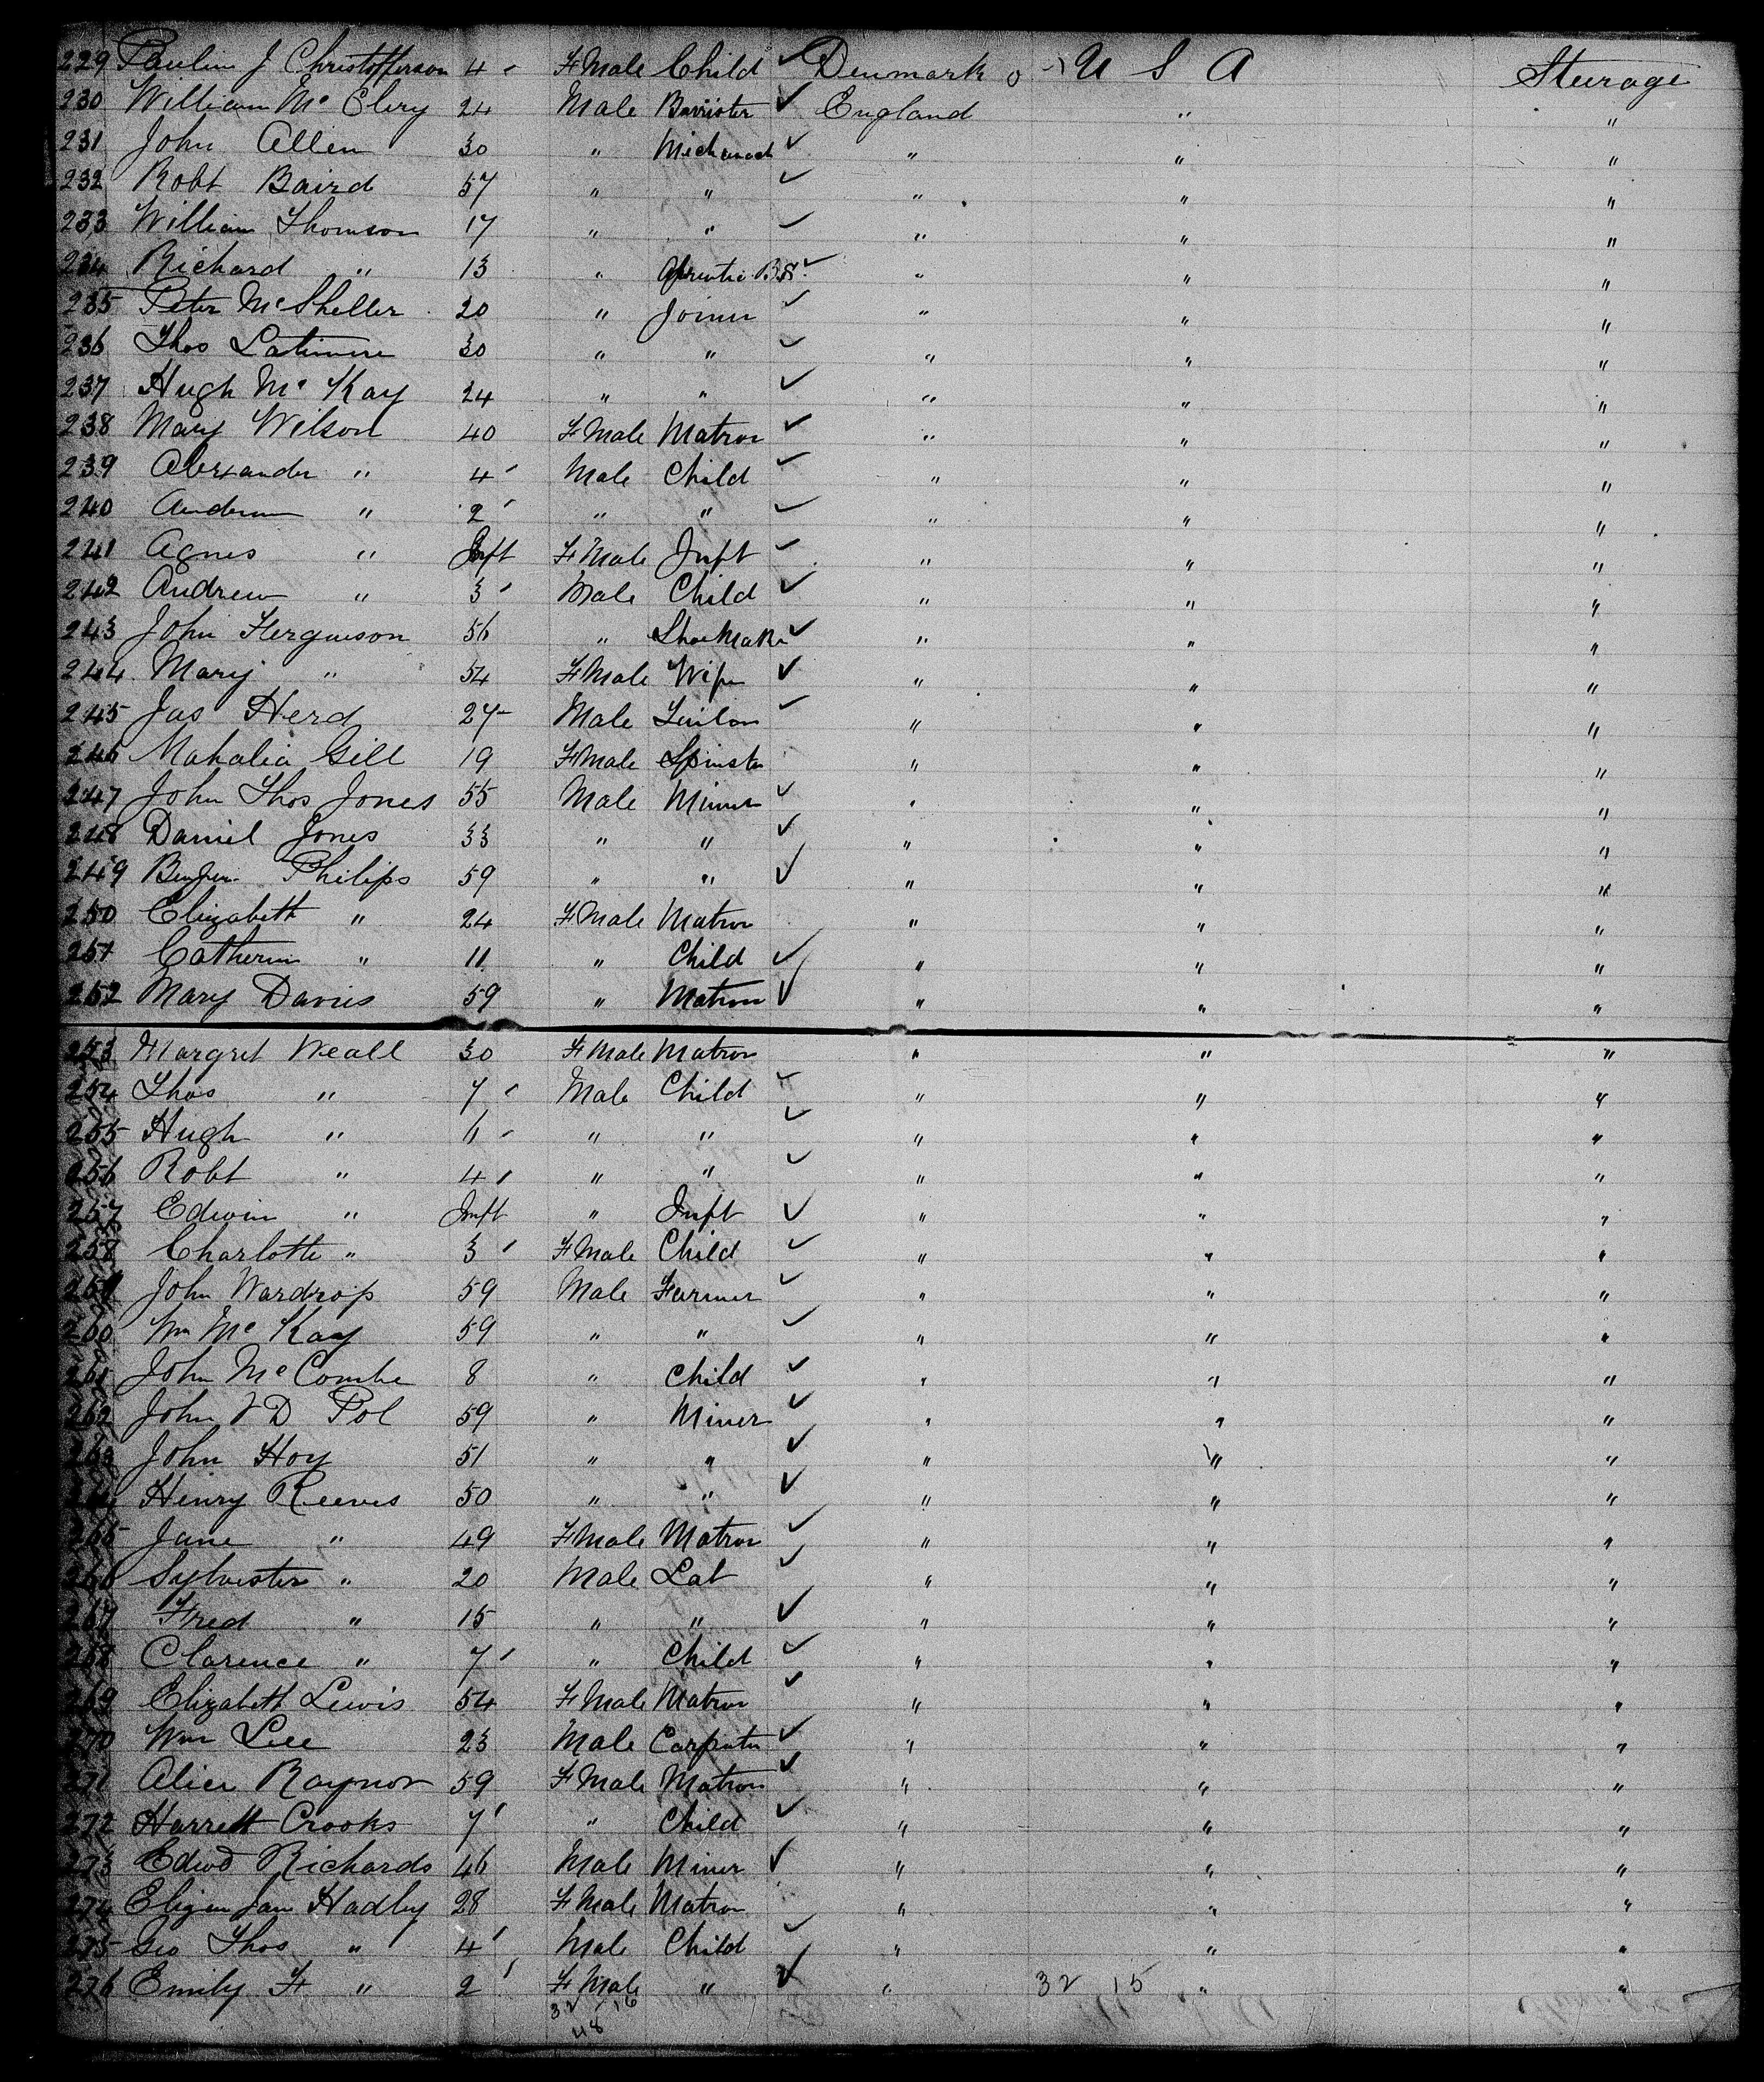 229 Pauline J Christofferson 4 - F Male Child ✓ Denmark U S A Steurage
230 William Mc Elery 24 Male Barrister ✓ England " "
231 John Allen 30 " ✓ " " "
232 Robt Baird 57 " " ✓ " " "
233 William Thomson 17 " " ✓ " " "
234 Richard " 13 " ✓ " " "
235 Peter McSheller 20 " Joiner ✓ " " "
236 Thos Latimere 30 " " ✓ " " "
237 Hugh Mc Kay 24 " " ✓ " " "
238 Mary Wilson 40 F Male Matron ✓ " " "
239 Alexander " 4 Male Child ✓ " " "
240 " 2 " " ✓ " " "
241 Agnes " Inft F Male Inft ✓ " " "
242 Andrew " 3 Male Child ✓ " " "
243 John Ferguson 56 " ShoeMaker ✓ " " "
244 Mary " 54 F Male Wife ✓ " " "
245 Jas Herd 27 Male ✓ " " "
246 Mahalia Gill 19 F Male Spinster " " "
247 John Thos Jones 55 Male Miner ✓ " " "
248 Daniel Jones 33 " " ✓ " " "
249 Benjn Philips 59 " " ✓ " " "
250 Elizabeth " 24 F Male Matron " " "
251 Catherin " 11 " Child ✓ " " "
252 Mary Davies 59 " Matron ✓ " " "
253 Margret Weall 30 F Male Matron " " "
254 Thos " 7 Male Child ✓ " " "
255 Hugh " 6 " " ✓ " " "
256 Robt " 4 " " ✓ " " "
257 Edwin " Inft " Inft ✓ " " "
258 Charlotte " 3 F Male Child ✓ " " "
259 John Wardrop 59 Male Farmer ✓ " " "
260 Wm Mc Kay 59 " " ✓ " " "
261 John McCombe 8 " Child ✓ " " "
262 John D Pol 59 " Miner ✓ " " "
263 John Hoy 51 " " ✓ " " "
264 Henry Reeves 50 " " ✓ " " "
265 Jane " 49 F Male Matron ✓ " " "
266 Sylvester " 20 Male Lab ✓ " " "
267 Fred " 15 " " ✓ " " "
268 Clarence " 7 " Child ✓ " " "
269 Elizabeth Lewis 54 F Male Matron ✓ " " "
270 Wm Lee 23 Male Carpenter ✓ " " "
271 Alice Raynor 59 F Male Matron ✓ " " "
272 Harrett Crooks 7 " Child ✓ " " "
273 Edwd Richards 46 Male Miner ✓ " " "
274 Jane Hadley 28 F Male Matron " " "
275 Geo Thos " 4 Male Child ✓ " " "
276 Emily F " 2 F Male " ✓ " 32 15 " "
32 16
48